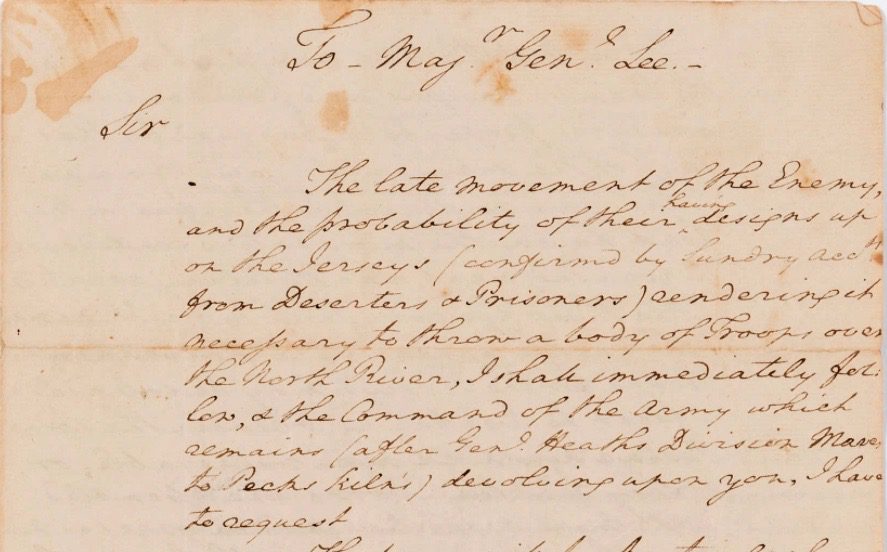 To - Maj.r Gen.l Lee. -
Sir
The late movement of the Enemy,
and the probability of their having designs up
on the Jerseys (confirmd by Sundry acc.ts
from Deserters & Prisoners) rendering it
necessary to throw a body of Troops over
the North River, I shall immediately fol:
low, & the Command of the Army which
remains (after Gen.l Heaths Division Moves
to Pecks kiln's) devolving upon you, I have
to request